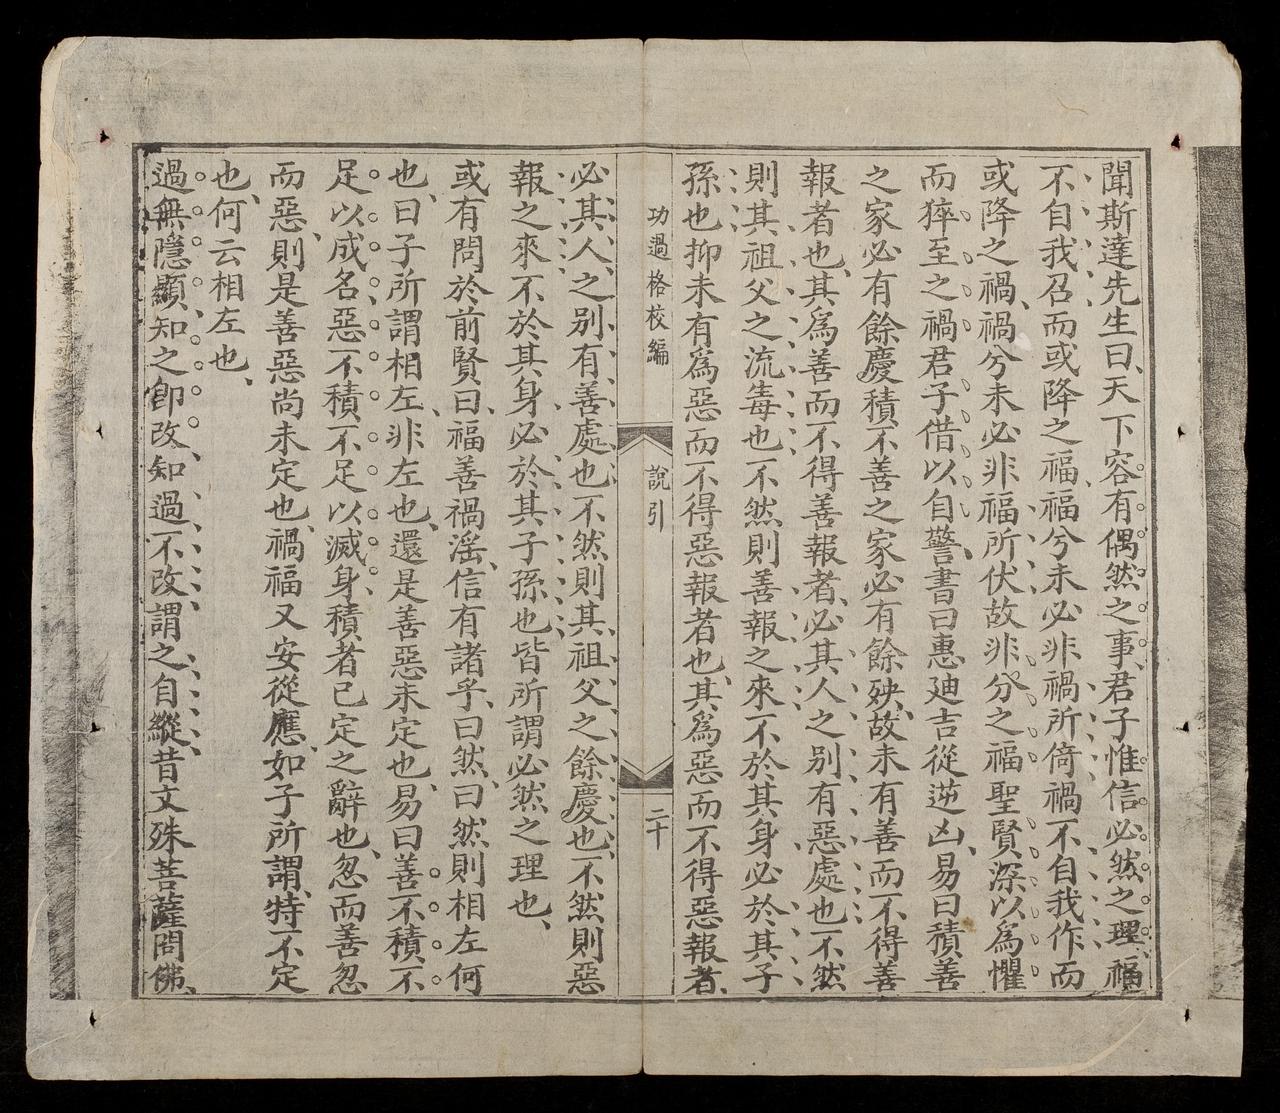 聞斯達先生曰、天下容有偶然之事、君子惟信必然之理、福
不自我召而或降之福、福兮未必非禍所倚、禍不自我作而
或降之禍、禍兮未必非福所伏、故非分之福、聖賢深以為懼
而猝至之禍、君子借以自警、書曰惠迪吉從逆凶、易曰積善
之家必有餘慶、積不善之家必有餘殃、故未有善而不得善
報者也、其為善而不得善報者、必其人之别有惡處也、不然
則其祖父之流毒也、不然則善報之來不於其身必於其子
孫也、抑未有為惡而不得惡報者也、其為惡而不得惡報者、
功過格校編
說引
二十
必其人之别有善處也、不然則其祖父之餘慶也、不然則惡
報之來不於其身必於其子孫也、皆所謂必然之理也、
或有問於前賢曰、福善禍淫、信有諸乎、曰然、曰然則相左何
也、曰子所謂相左、非左也、還是善惡未定也、易曰善不積不
足以成名、惡不積不足以滅身、積者已定之辭也、忽而善忽
而惡、則是善惡尚未定也、禍福又安從應、如子所謂、特不定
也、何云相左也、
過無隱顯、知之卽改、知過不改、謂之自縱、昔文殊菩薩問佛、